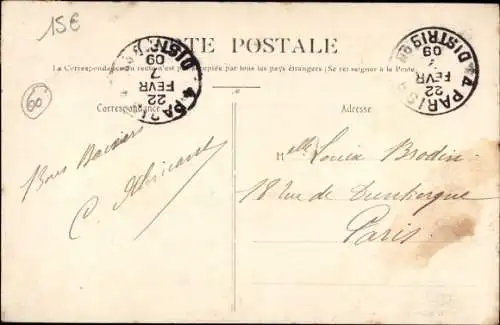 15€
CARTE POSTALE
La Correspondance au recto n'est pas acceptée par tous les pays étrangers (Se renseigner à la Poste)
Correspondance
60
PARIS
DISTRIBON
7
22
FEVR
09
PARIS
DISTRIBON
22
FEVR
09
Bons Baisers
C.
Melle Louise Brodin
18 rue de Dunkerque
Paris